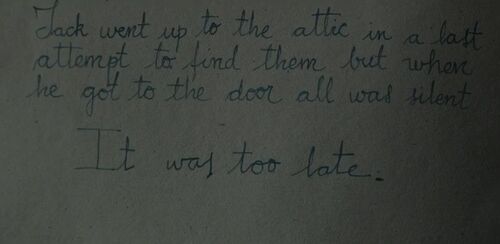 Jack went up to the attic in a last
attempt to find them but when
he got to the door all was silent
It was too late.